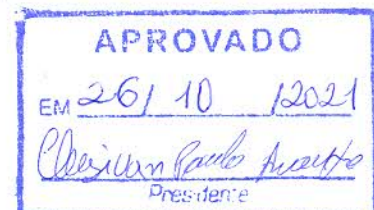 APROVADO
EM 26/ 10 /2021
Paulo
Presidente